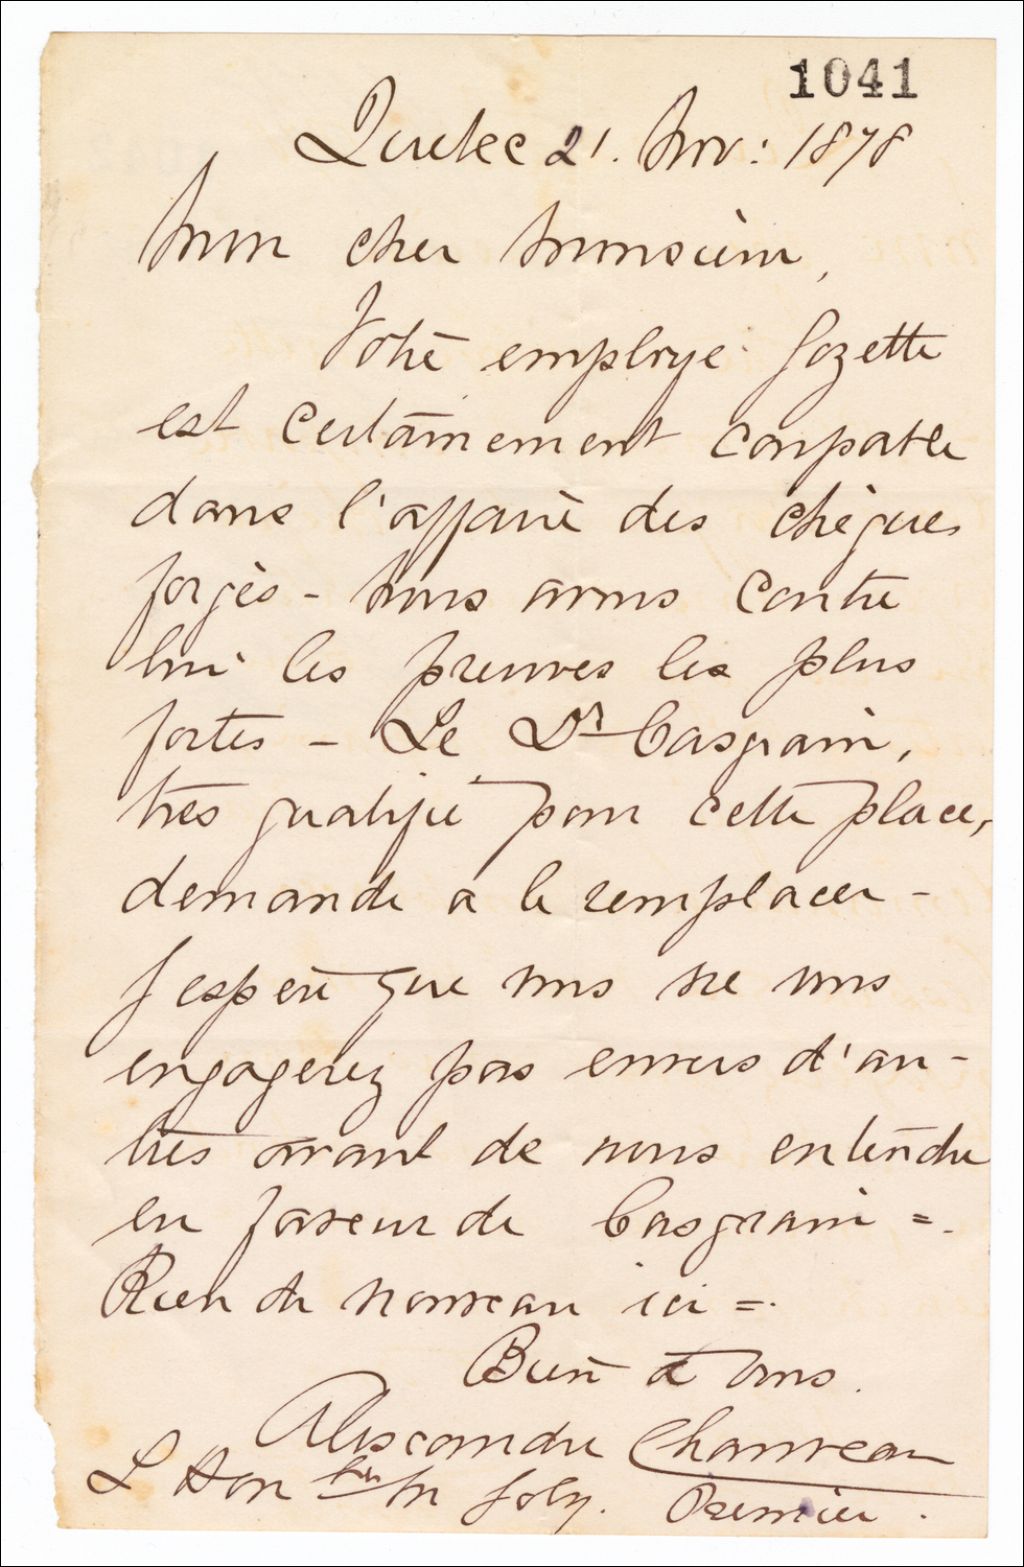 1041
Quebec 21. Nov: 1878
Mon cher Monsieur,
Votre employé Gozette
est certainement coupable
dans l'affaire des chèques
forgès - Nous avons contre
lui les preuves les plus
fortes - Le Dr Casgrain,
très qualifié pour cette place,
demande a le remplacer -
J'espère que vous ne vous
engagerez pas envers d'au-
tres avant de nous entendre
en faveur de Casgrain =.
Rien de nouveau ici =.
Bien à vous.
Alexandre Chauveau
L Hon M Joly. Premier.